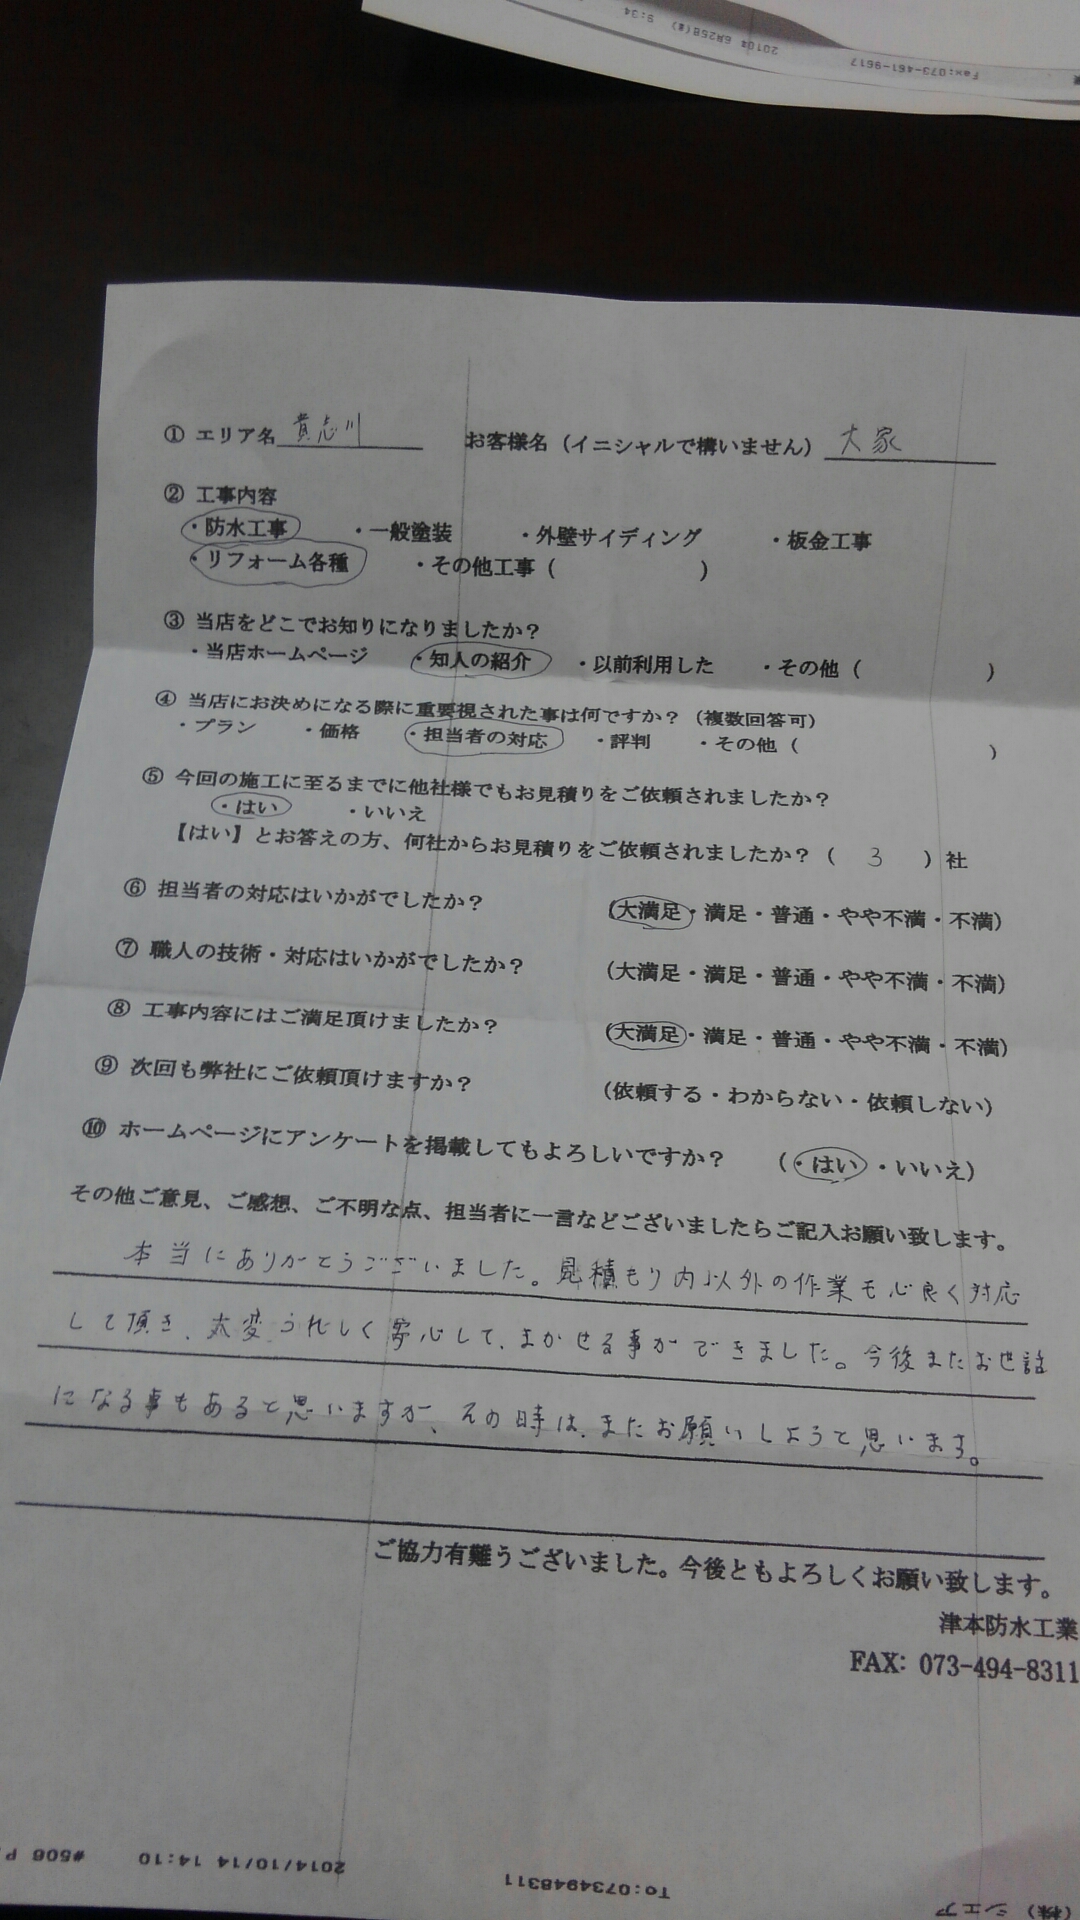 2010年 6月25日(金) 9:34
Fax:073-461-9617
① エリア名 貴志川 お客様名（イニシャルで構いません） 大家
② 工事内容
・防水工事 ・一般塗装 ・外壁サイディング ・板金工事
・リフォーム各種 ・その他工事（ ）
③ 当店をどこでお知りになりましたか？
・当店ホームページ ・知人の紹介 ・以前利用した ・その他（ ）
④ 当店にお決めになる際に重要視された事は何ですか？（複数回答可）
・プラン ・価格 ・担当者の対応 ・評判 ・その他（ ）
⑤ 今回の施工に至るまでに他社様でもお見積りをご依頼されましたか？
・はい ・いいえ
【はい】とお答えの方、何社からお見積りをご依頼されましたか？（ 3 ）社
⑥ 担当者の対応はいかがでしたか？ （大満足・満足・普通・やや不満・不満）
⑦ 職人の技術・対応はいかがでしたか？ （大満足・満足・普通・やや不満・不満）
⑧ 工事内容にはご満足頂けましたか？ （大満足・満足・普通・やや不満・不満）
⑨ 次回も弊社にご依頼頂けますか？ （依頼する・わからない・依頼しない）
⑩ ホームページにアンケートを掲載してもよろしいですか？ （・はい ・いいえ）
その他ご意見、ご感想、ご不明な点、担当者に一言などございましたらご記入お願い致します。
本当にありがとうございました。見積もり内以外の作業も心良く対応
して頂き、大変うれしく安心して、まかせる事ができました。今後またお世話
になる事もあると思いますが、その時は、またお願いしようと思います。
ご協力有難うございました。今後ともよろしくお願い致します。
津本防水工業
FAX: 073-494-8311
(株) シェア
To:0734948311
2014/10/14 14:10
#506 P